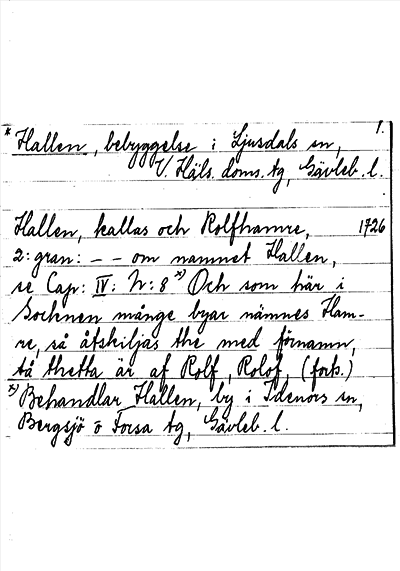 1.
* Hallen, bebyggelse i Ljusdals sn,
V. Häls. doms. tg, Gävleb. l.
Hallen, kallas och Rolfhamre, 1726
2: gran: – – om namnet Hallen,
se Cap: IV: N: 8 x) Och som här i
Sochnen månge byar nämnes Ham-
re, så åtskiljas the med förnamn,
tå thetta är af Rolf, Rolof, (forts.)
x) Behandlar Hallen, by i Idenors sn,
Bergsjö o Forsa tg, Gävleb. l.